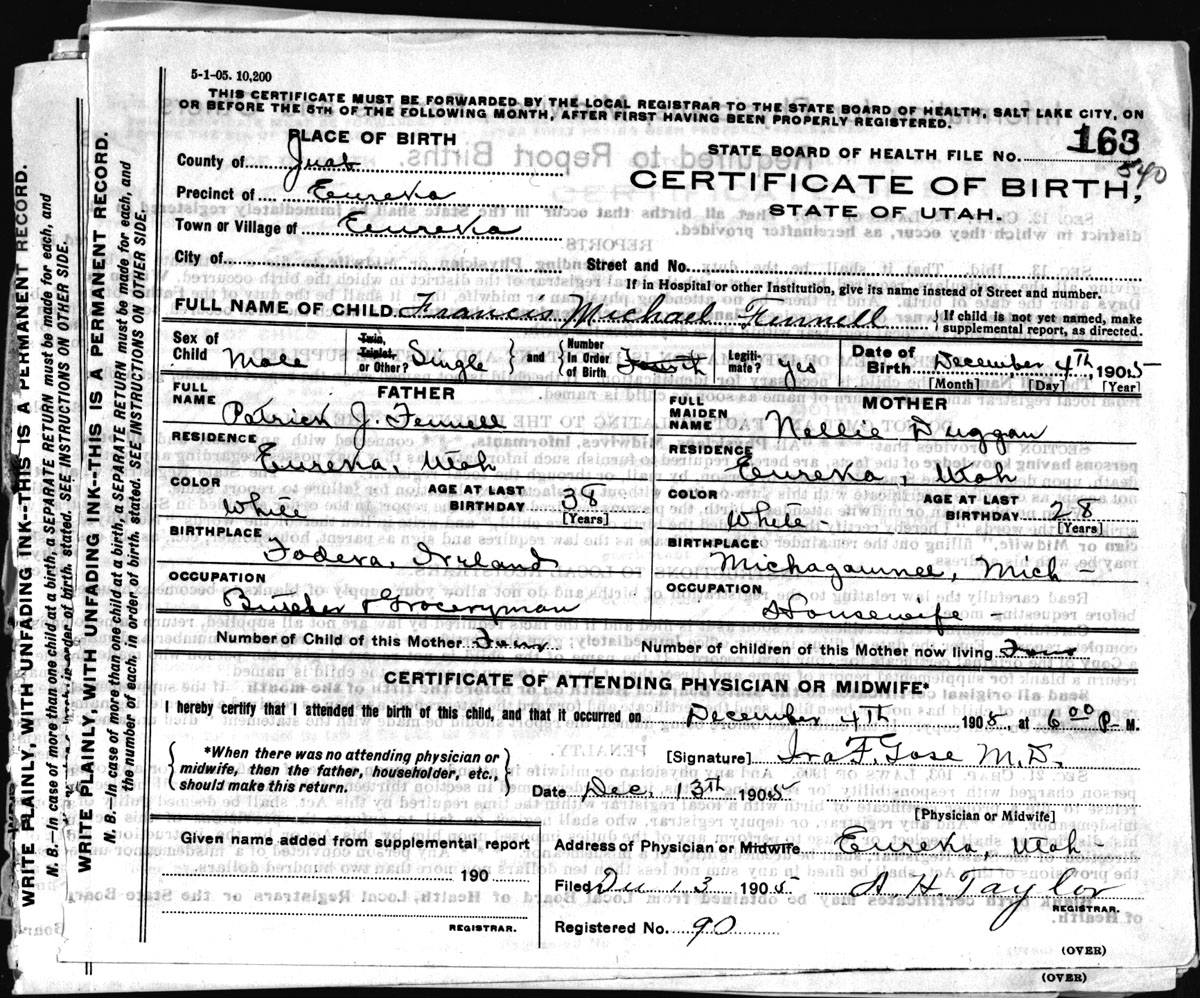 5-1-05. 10,200
THIS CERTIFICATE MUST BE FORWARDED BY THE LOCAL REGISTRAR TO THE STATE BOARD OF HEALTH, SALT LAKE CITY, ON
OR BEFORE THE 5TH OF THE FOLLOWING MONTH, AFTER FIRST HAVING BEEN PROPERLY REGISTERED.
PLACE OF BIRTH
STATE BOARD OF HEALTH FILE NO. 163
540
County of Juab
CERTIFICATE OF BIRTH,
Precinct of Eureka
STATE OF UTAH.
Town or Village of Eureka
City of
Street and No.
If in Hospital or other Institution, give its name instead of Street and number.
FULL NAME OF CHILD Francis Michael Fennell { If child is not yet named, make supplemental report, as directed.
Sex of Child Male Twin, Triplet, or Other? Single } and { Number In Order of Birth Fourth Legiti- mate? yes Date of Birth December 4th 1905
[Month] [Day] [Year]
FATHER
FULL NAME Patrick J. Fennell
RESIDENCE Eureka, Utah
COLOR White AGE AT LAST BIRTHDAY 38 [Years]
BIRTHPLACE Ireland
OCCUPATION Butcher & Groceryman
MOTHER
FULL MAIDEN NAME Nellie Duggan
RESIDENCE Eureka, Utah
COLOR White - AGE AT LAST BIRTHDAY 28 [Years]
BIRTHPLACE Michagamnee, Mich -
OCCUPATION Housewife -
Number of Child of this Mother Four Number of children of this Mother now living Four
CERTIFICATE OF ATTENDING PHYSICIAN OR MIDWIFE*
I hereby certify that I attended the birth of this child, and that it occurred on December 4th 1905 at 6 00 P- M.
{ *When there was no attending physician or midwife, then the father, householder, etc., should make this return. }
[Signature] Ira F. M.D.
Date Dec. 13th 1905
[Physician or Midwife]
Given name added from supplemental report
190
REGISTRAR.
Address of Physician or Midwife Eureka, Utah -
Filed 13 1905 H Taylor
REGISTRAR.
Registered No. 90
(OVER)
(OVER)
WRITE PLAINLY, WITH UNFADING INK--THIS IS A PERMANENT RECORD.
N. B.—In case of more than one child at a birth, a SEPARATE RETURN must be made for each, and
in order of birth, stated. SEE INSTRUCTIONS ON OTHER SIDE.
WRITE PLAINLY, WITH UNFADING INK--THIS IS A PERMANENT RECORD.
N. B.—In case of more than one child at a birth, a SEPARATE RETURN must be made for each, and the
number of each, in order of birth, stated. SEE INSTRUCTIONS ON OTHER SIDE.